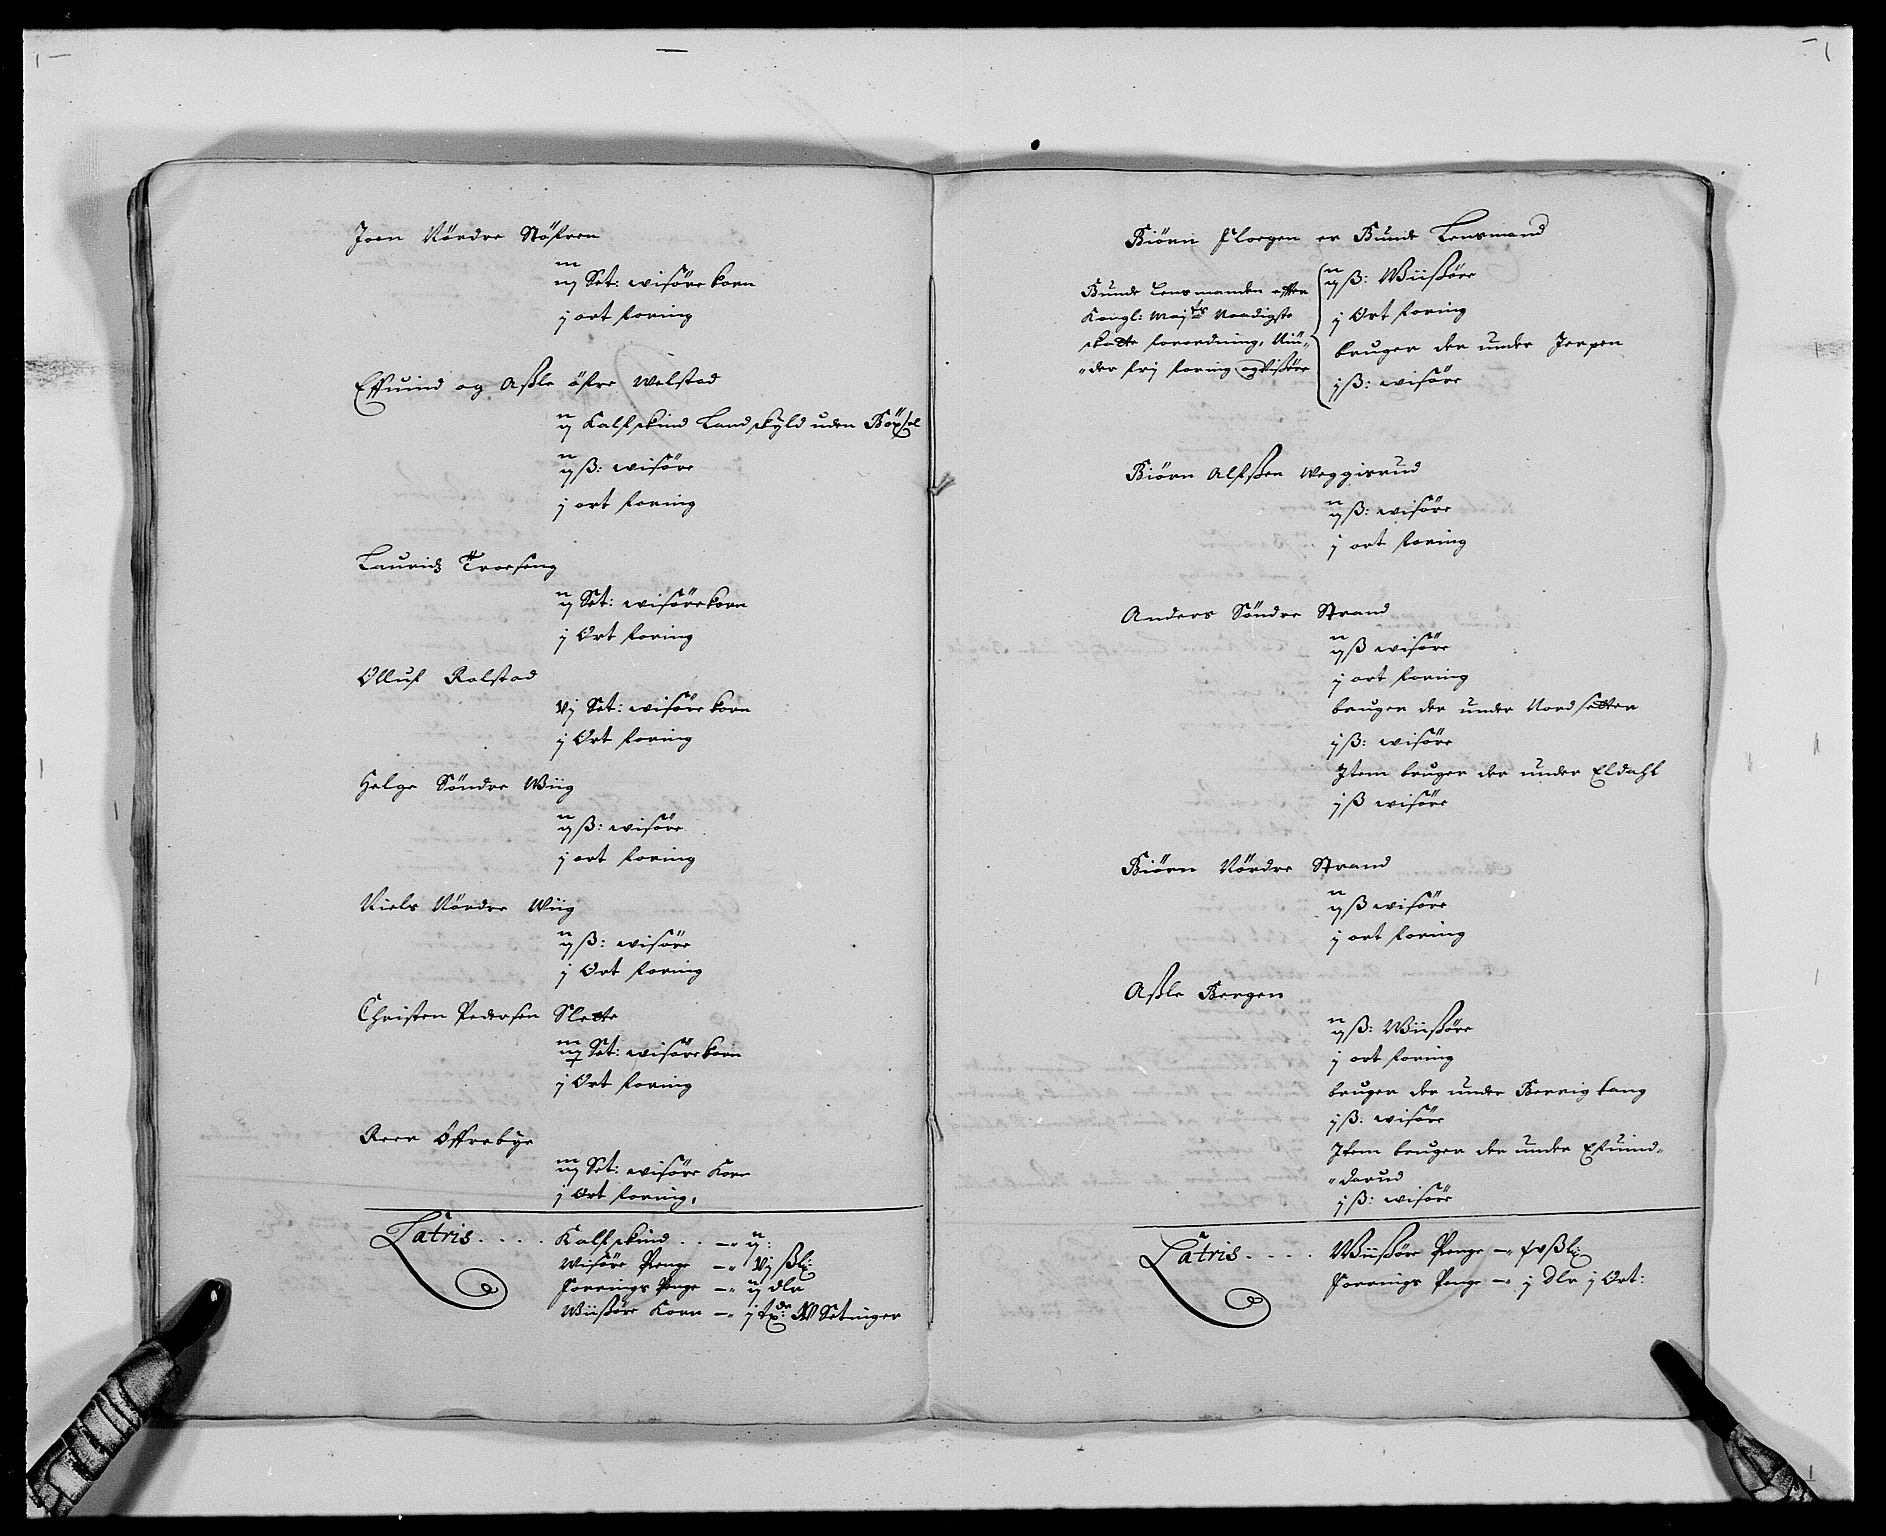 Joen Nördre Nöfren
iij Set: wisöre korn
j ort foring
Effuind og Aßle öfre Welstad
ij Kalfskind Landskyld uden Böxsel
ij ß: wisöre
j ort foring
Lauridz Troeseng
ij Set: wisöre korn
j Ort foring
Olluf Rolstad
vj Set: wisöre korn
j Ort foring
Helge Söndre Wiig
ij ß: wisöre
j ort foring
Niels Nördre Wiig
ij ß: wisöre
j Ort foring
Christen Pedersen Slette
Set: wisöre korn
j Ort foring
Reer Öffrebye
iij Set: wisöre Korn
j Ort foring.
Latris . . . . Kalfskind . . — ij:
Wisöre Penge — vj ßl:
Forrings Penge — ij dlr
Wiisöre Korn — j tx: Setninger
Biörn Floegen er Bunde Lensmand
Bunde Lensmanden efter
Kongl: Maj:ts Naadigste
skatte forordning, Niü-
der frj foring og Wisöre
ij ß: Wiisöre
j Ort foring
bruger der under Jerpen
j ß: wisöre
Biörn Alfsen Weggisrud
ij ß: wisöre
j ort foring
Anders Söndre Strand
ij ß wisöre
j ort foring
bruger der under Nordsetter
j ß: wisöre
Item bruger der under Eldahl
j ß wisöre
Biörn Nördre Strand
ij ß wisöre
j ort foring
Aßle Bergen
ij ß: Wiisöre
j ort foring
bruger der under Berrig bang
j ß: wisöre
Item bruger der under Efuind-
darud
j ß: wisöre
Latris . . . . Wiisöre Penge — ßl:
Forrings Penge — j dlr j Ort: